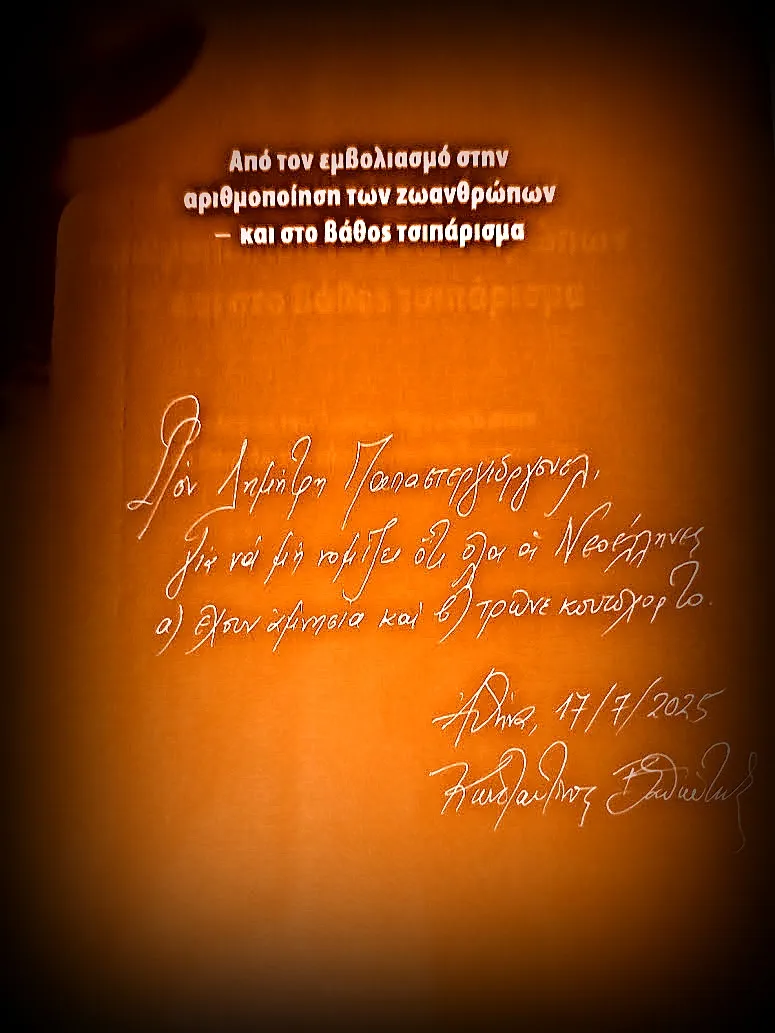 Από τον εμβολιασμό στην
αριθμοποίηση των ζωανθρώπων
– και στο βάθος τσιπάρισμα
Στόν Δημήτρη
Γιά νά μή νομίζει ὅτι ὅλοι οἱ Νεοέλληνες
α) ἔχουν ἀμνησία καί β) τρῶνε κουτόχορτο.
Ἀθήνα, 17/7/2025
Κωνσταντῖνος